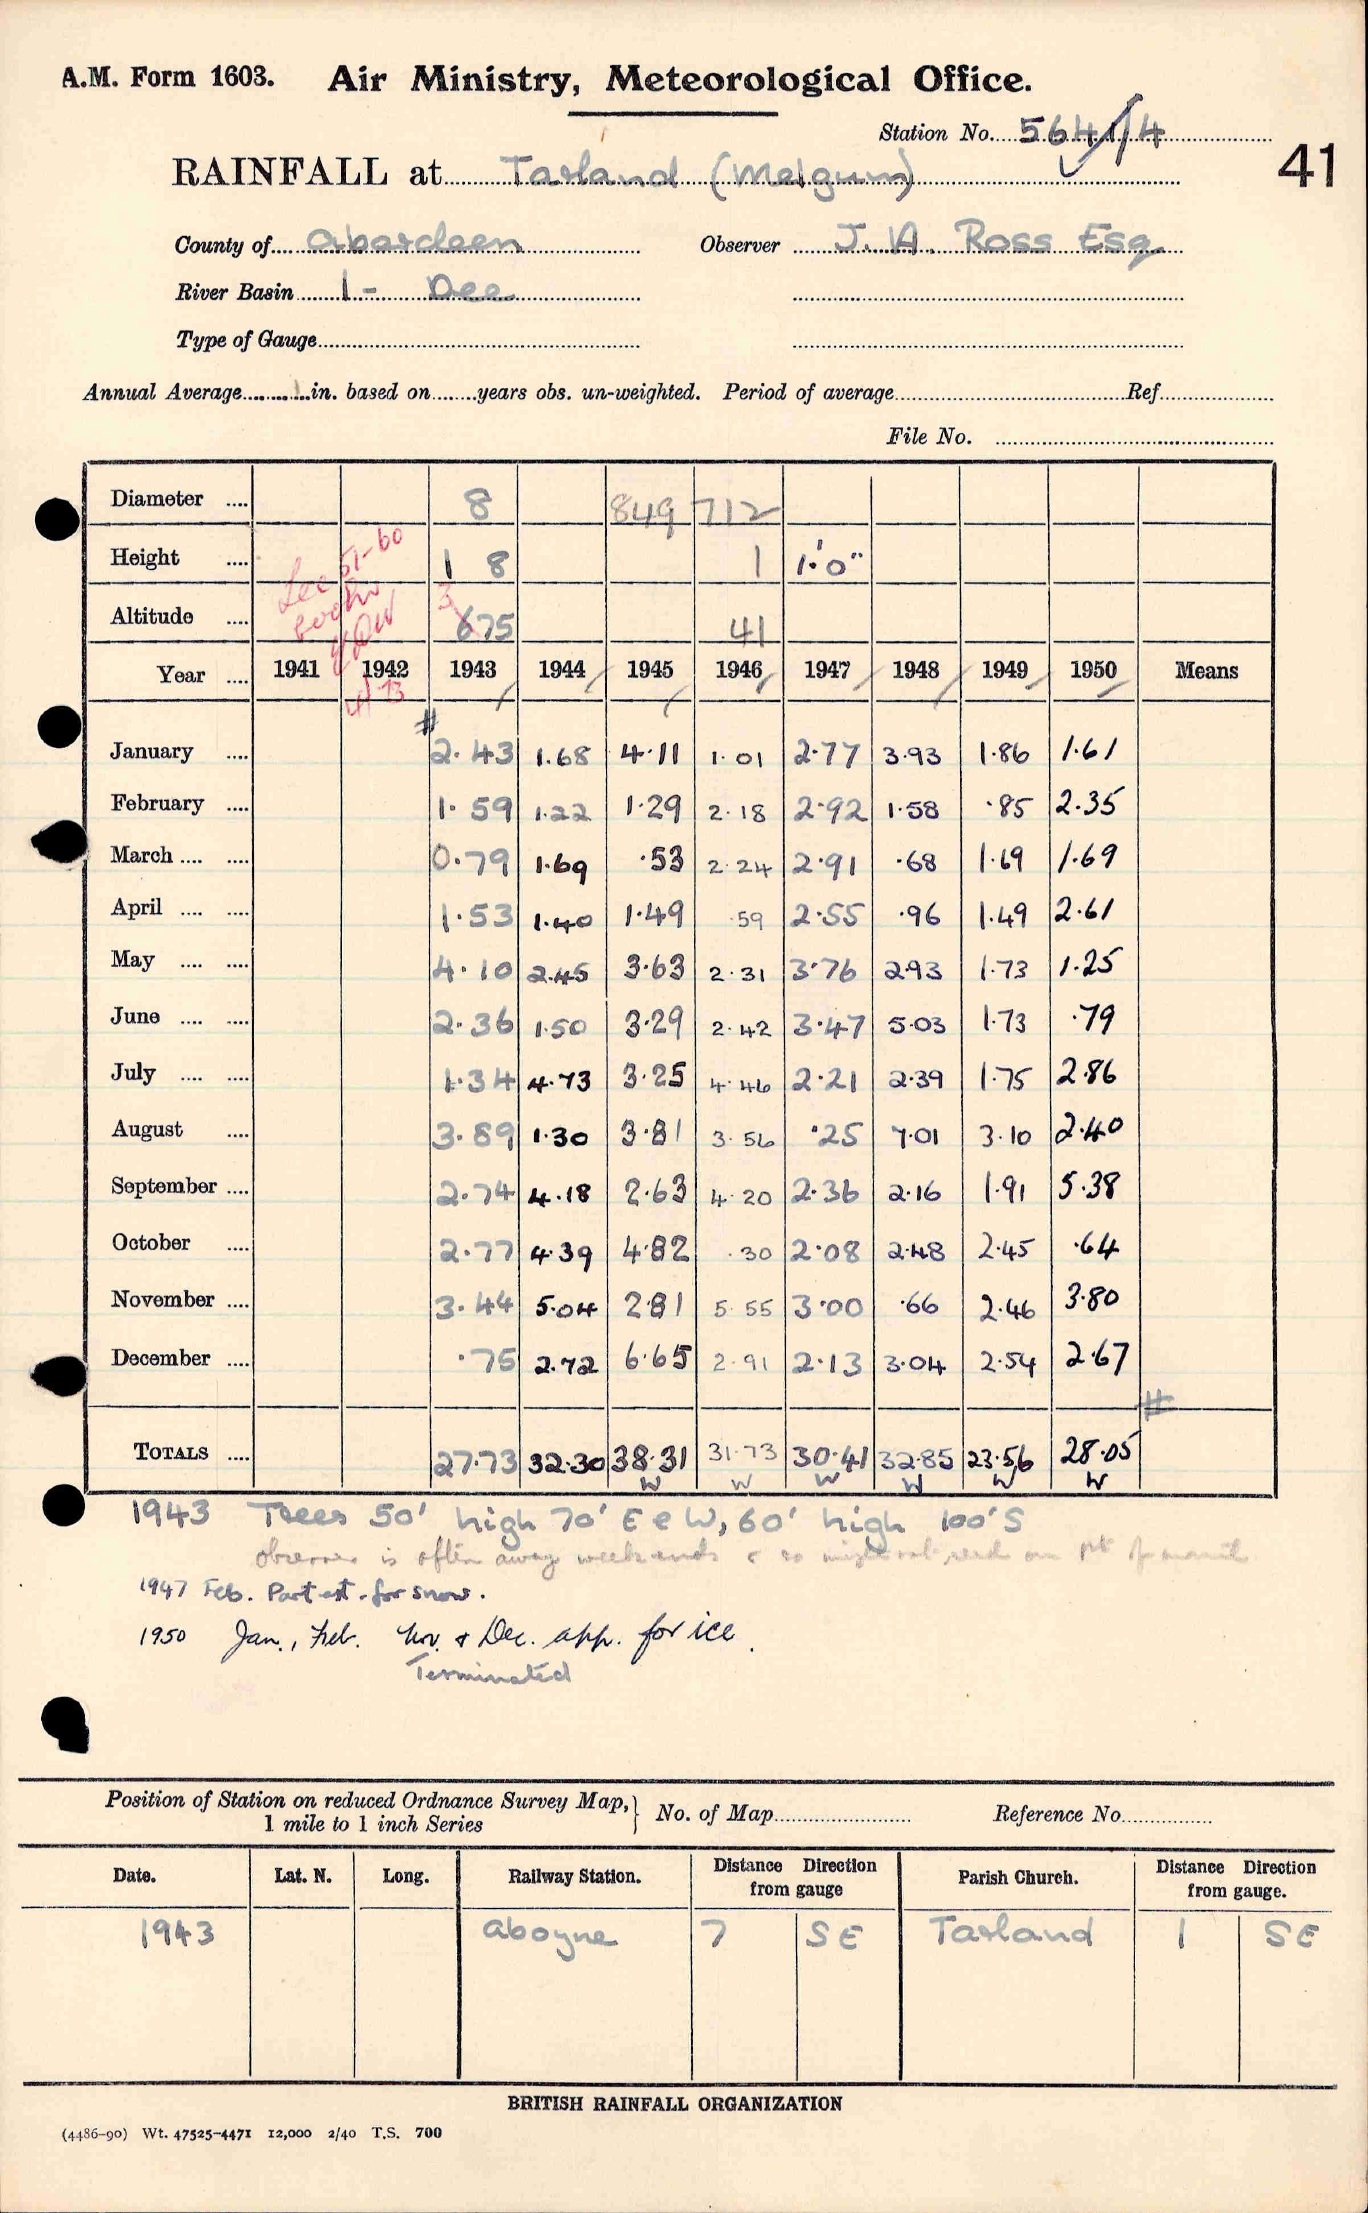 A.M. Form 1603. Air Ministry, Meteorological Office.
Station No. 564/14
41
RAINFALL at Tarland (Melgum)
County of Aberdeen Observer J. A. Ross Esq
River Basin 1 - Dee
Type of Gauge
Annual Average in. based on years obs. un-weighted. Period of average Ref
File No.
Diameter 8 849 712
Height 1 8 1 1'.0"
See 51-60
Altitude 3 675 41
Year 1941 1942 1943 1944 1945 1946 1947 1948 1949 1950 Means
January 2.43 1.68 4.11 1.01 2.77 3.93 1.86 1.61
February 1.59 1.22 1.29 2.18 2.92 1.58 .85 2.35
March 0.79 1.69 .53 2.24 2.91 .68 1.69 1.69
April 1.53 1.40 1.49 .59 2.55 .96 1.49 2.61
May 4.10 2.45 3.63 2.31 3.76 2.93 1.73 1.25
June 2.36 1.50 3.29 2.42 3.47 5.03 1.73 .79
July 1.34 4.73 3.25 4.46 2.21 2.39 1.75 2.86
August 3.89 1.30 3.81 3.56 .25 7.01 3.10 2.40
September 2.74 4.18 2.63 4.20 2.36 2.16 1.91 5.38
October 2.77 4.39 4.82 .30 2.08 2.48 2.45 .64
November 3.44 5.04 2.81 5.55 3.00 .66 2.46 3.80
December .75 2.72 6.65 2.91 2.13 3.04 2.54 2.67
TOTALS 27.73 32.30 38.31 31.73 30.41 32.85 23.56 28.05
W W W W W W
1943 Trees 50' high 70' E & W, 60' high 100' S
observer is often away weekends & so might not read on 1st of month
1947 Feb. Part est. for snow.
1950 Jan., Feb. Nov. & Dec. app. for ice.
Terminated
Position of Station on reduced Ordnance Survey Map,
1 mile to 1 inch Series
No. of Map Reference No.
Date. Lat. N. Long. Railway Station. Distance Direction from gauge Parish Church. Distance Direction from gauge.
1943 Aboyne 7 SE Tarland 1 SE
BRITISH RAINFALL ORGANIZATION
(4486-90) Wt. 47525-4471 12,000 2/40 T.S. 700